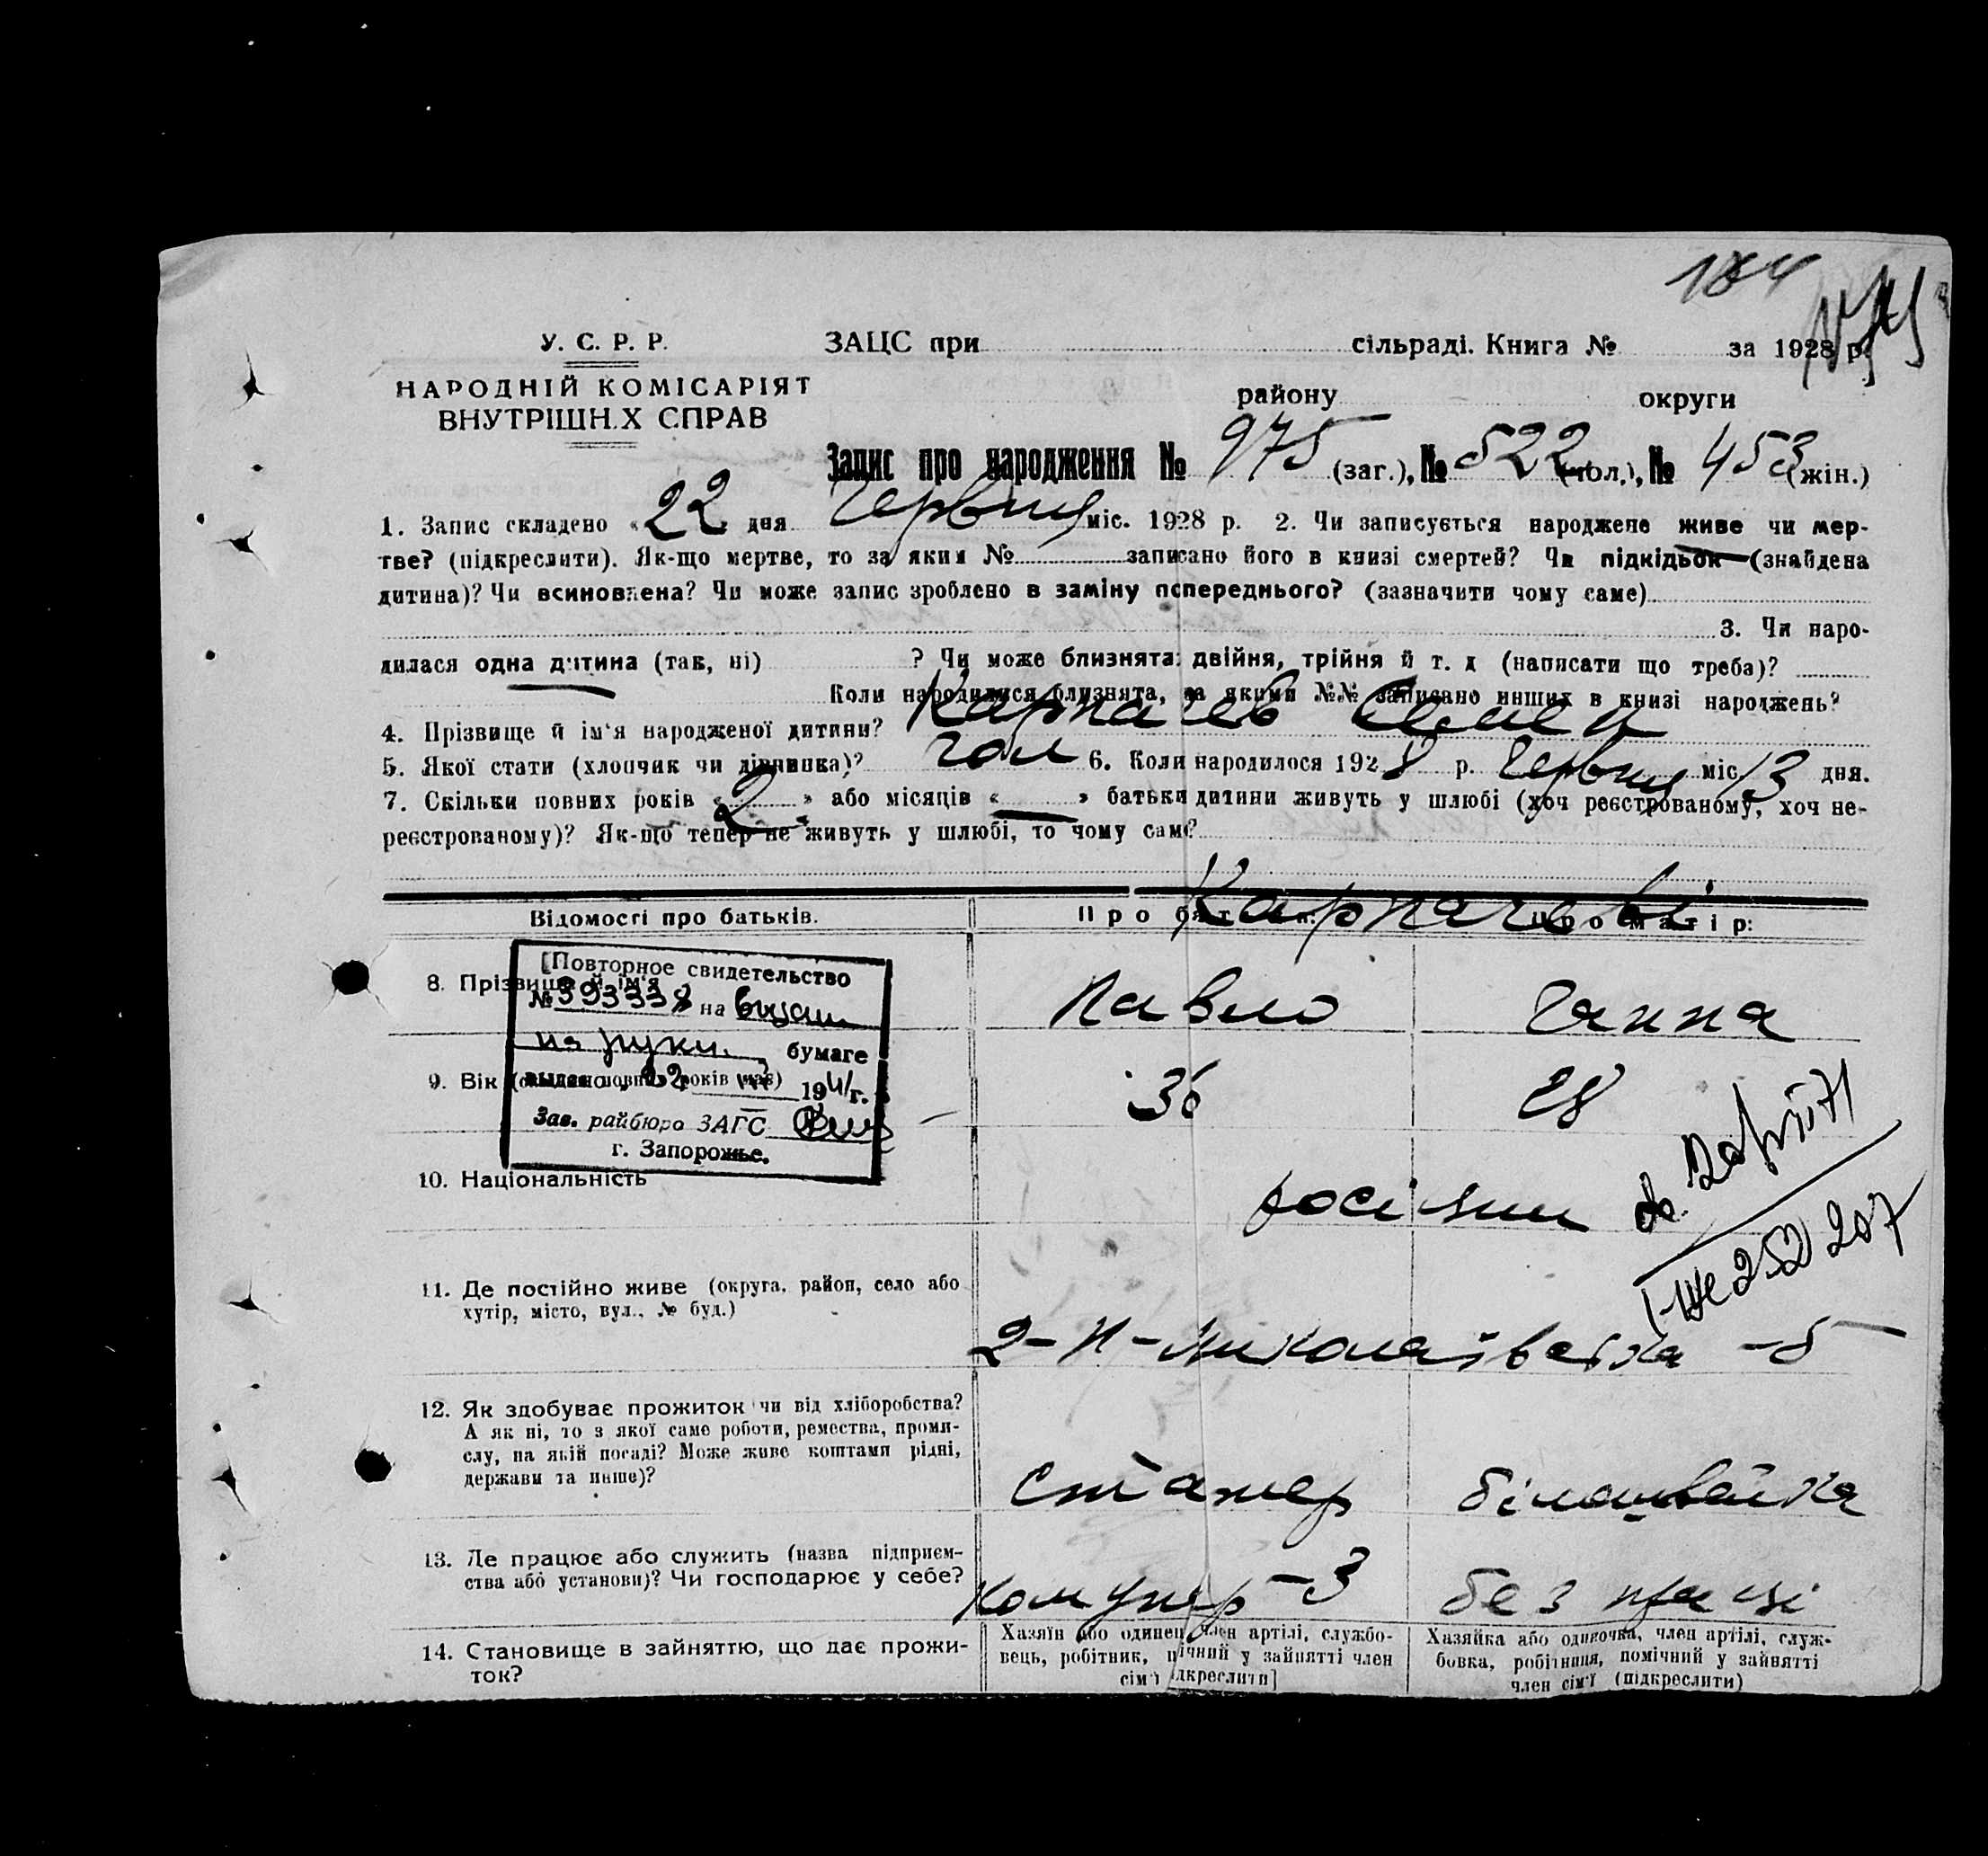 184
У. С. Р. Р. ЗАЦС при сільраді. Книга № за 1928 р.
НАРОДНІЙ КОМІСАРІЯТ району округи
ВНУТРІШН.Х СПРАВ
Запис про народження № 975 (заг.), № 522 (чол.), № 453 (жін.)
1. Запис складено «22» дня червня міс. 1928 р. 2. Чи записується народжене живе чи мер-
тве? (підкреслити). Як-що мертве, то за яким № записано його в книзі смертей? Чи підкідьок (знайдена
дитина)? Чи всиновлена? Чи може запис зроблено в заміну попереднього? (зазначити чому саме)
3. Чи наро-
дилася одна дитина (так, ні) ? Чи може близнята: двійня, трійня й т. д (написати що треба)?
Коли народилися близнята, за якими №№ записано инших в книзі народжень?
4. Прізвище й ім'я народженої дитини? Карпачев
5. Якої статі (хлопчик чи дівчинка)? чол 6. Коли народилося 1928 р. червня міс 13 дня.
7. Скільки повних років «2» або місяців « » батьки дитини живуть у шлюбі (хоч реєстрованому, хоч не-
реєстрованому)? Як-що тепер не живуть у шлюбі, то чому саме?
Карпачеві
Відомості про батьків. Про батька: Про матір:
8. Прізвище й ім'я Павло Ганна
[Повторное свидетельство
№ 393338 на
на руки. бумаге
выдано 22 VII 1941 г.
Зав. райбюро ЗАГС
г. Запорожье.
9. Вік (скільки повних років має) 36 28
10. Національність росіяни
І-ЖС 252207
11. Де постійно живе (округа, район, село або
хутір, місто, вул., № буд.)
2-Н-Миколаївська -5
12. Як здобуває прожиток чи від хліборобства?
А як ні, то з якої саме роботи, ремества, проми-
слу, на якій посаді? Може живе коштами рідні,
держави та инше)?
13. Де працює або служить (назва підприєм-
ства або установи)? Чи господарює у себе?
Комунар -3 без праці
14. Становище в зайняттю, що дає прожи-
ток?
Хазяїн або одинец, член артілі, службо-
вець, робітник, помічний у зайнятті член
сім'ї [підкреслити]
Хазяйка або одиночка, член артілі, служ-
бовка, робітниця, помічний у зайнятті
член сім'ї (підкреслити)